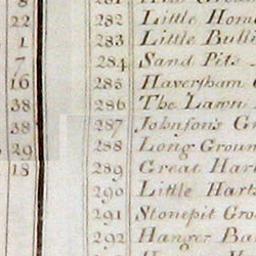 8 281
22 282 Little Hom
1 283 Little Bulli
7 284 Sand Pits
16 285 Haversham
38 286 The Lawn
38 287 Johnson's Gr
29 288 Long Groun
18 289 Great Har
290 Little Harts
291 Stonepit Gro
292 Hanger Ba